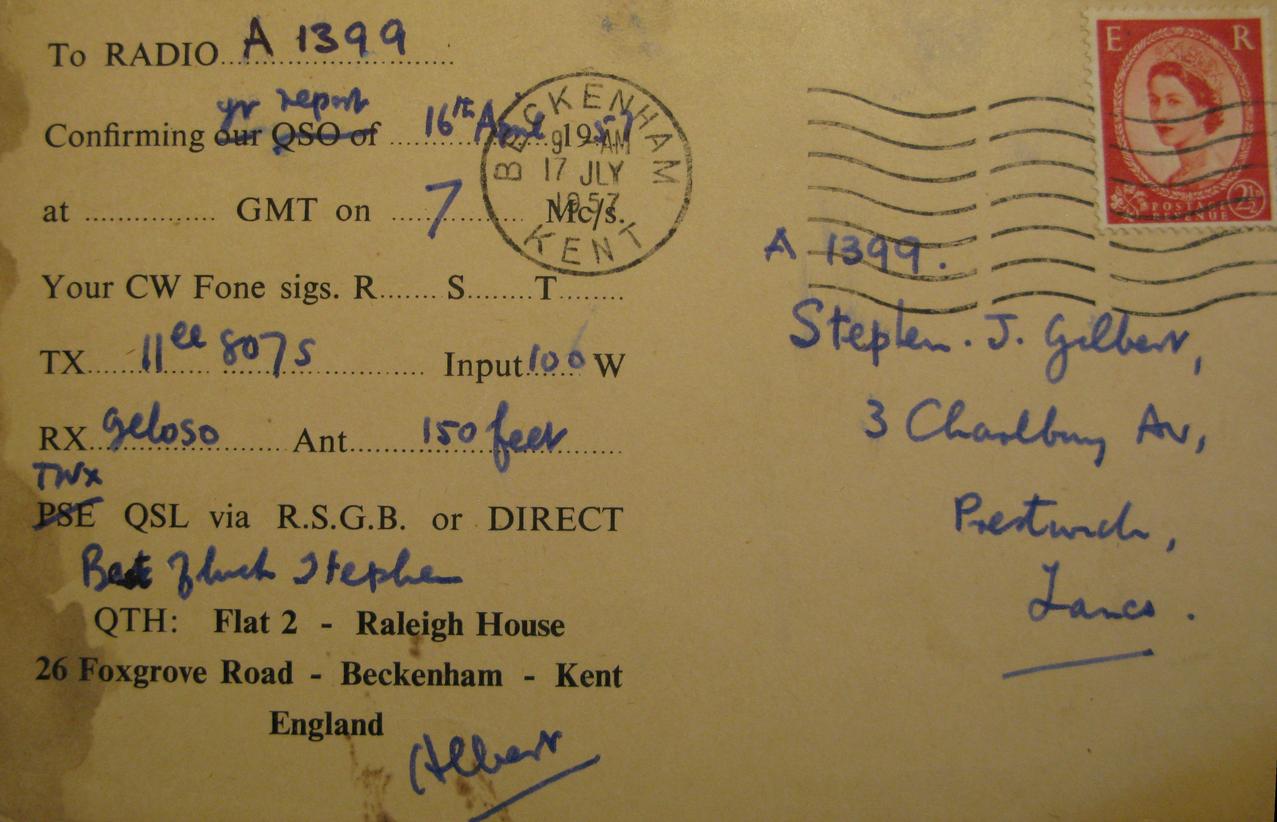 To RADIO A 1399
yr report
Confirming our QSO of 16th April 1957
at ............... GMT on 7 Mc/s.
Your CW Fone sigs. R....... S........T........
TX 11ee 807s Input 100 W
RX geloso Ant 150 feet
TNX
PSE QSL via R.S.G.B. or DIRECT
Best of luck Stephen
QTH: Flat 2 - Raleigh House
26 Foxgrove Road - Beckenham - Kent
England
Albert
BECKENHAM
9 - AM
17 JLY
1957
KENT
E R
POSTAGE
REVENUE
2½
A 1399.
Stephen. J. Gilbert,
3 Charlbury Av,
Prestwich,
Lancs.